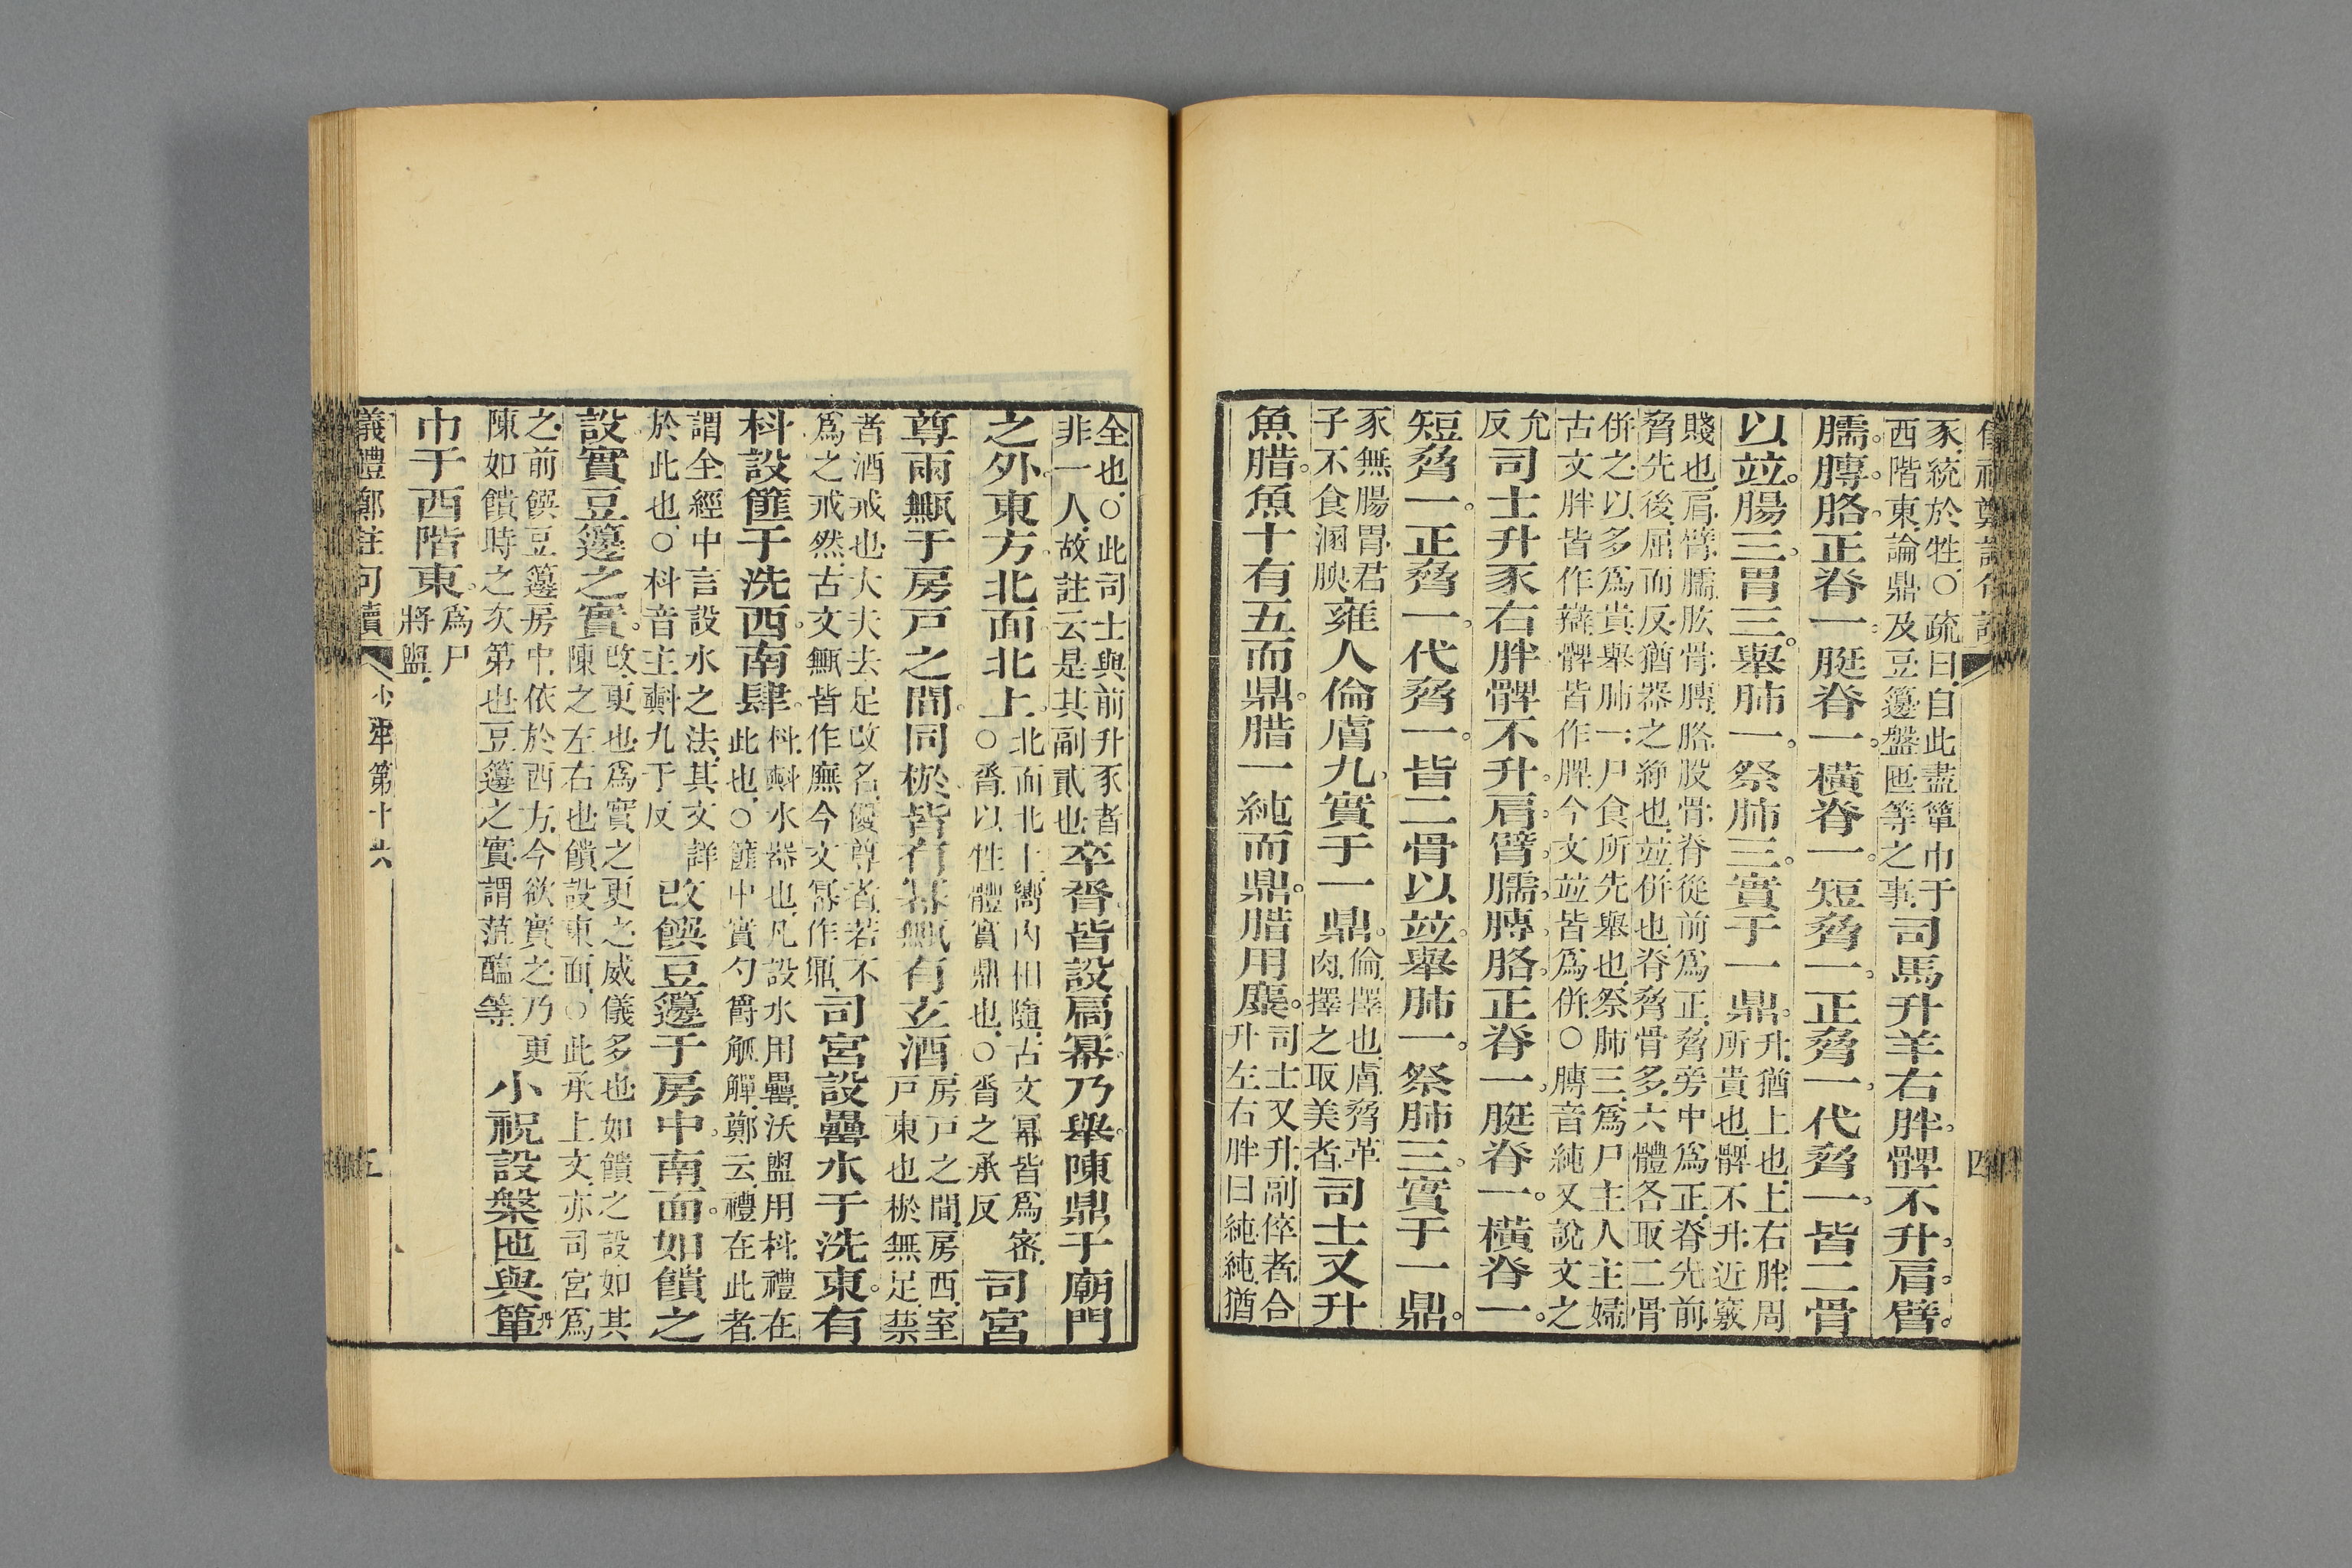 豕統於牲○疏曰自此盡簞巾于
西階東論鼎及豆籩盤匜等之事司馬升羊右胖髀不升肩臂
臑膊胳正脊一脡脊一橫脊一短脅一正脅一代脅一皆二骨
以竝腸三胃三舉肺一祭肺三實于一鼎升猶上也上右胖周
所貴也髀不升近竅
賤也肩臂臑肱骨膊胳股骨脊從前爲正脅旁中爲正脊先前
脅先後屈而反猶器之綷也竝併也脊脅骨多六體各取二骨
併之以多爲貴舉肺一尸食所先舉也祭肺三爲尸主人主婦
古文胖皆作辯髀皆作脾今文竝皆爲併○膊音純又說文之
允
反司士升豕右胖髀不升肩臂臑膊胳正脊一脡脊一橫脊一
短脅一正脅一代脅一皆二骨以竝舉肺一祭肺三實于一鼎
豕無腸胃君
子不食溷腴雍人倫膚九實于一鼎倫擇也膚脅革
肉擇之取美者司士又升
魚腊魚十有五而鼎腊一純而鼎腊用麋司士又升副倅者合
升左右胖曰純純猶
四
全也○此司士與前升豕者
非一人故註云是其副貳也卒脀皆設扃冪乃舉陳鼎于廟門
之外東方北面北上北面北上嚮內相隨古文冪皆爲密
○脀以牲體實鼎也○脀之承反司宮
尊兩甒于房戶之間同棜皆有冪甒有玄酒房戶之間房西室
戶東也棜無足禁
者酒戒也大夫去足改名優尊者若不
爲之戒然古文甒皆作廡今文冪作鼏司宮設罍水于洗東有
枓設篚于洗西南肆枓㪺水器也凡設水用罍沃盥用枓禮在
此也○篚中實勺爵觚觶鄭云禮在此者
謂全經中言設水之法其文詳
於此也○枓音主㪺九于反改饌豆籩于房中南面如饋之
設實豆籩之實改更也爲實之更之威儀多也如饋之設如其
陳之左右也饋設東面○此承上文亦司宮爲
之前饌豆籩房中依於西方今欲實之乃更
陳如饋時之次第也豆籩之實謂菹醢等小祝設槃匜與簞
巾于西階東爲尸
將盥
儀禮鄭註句讀
少牢第十六
五